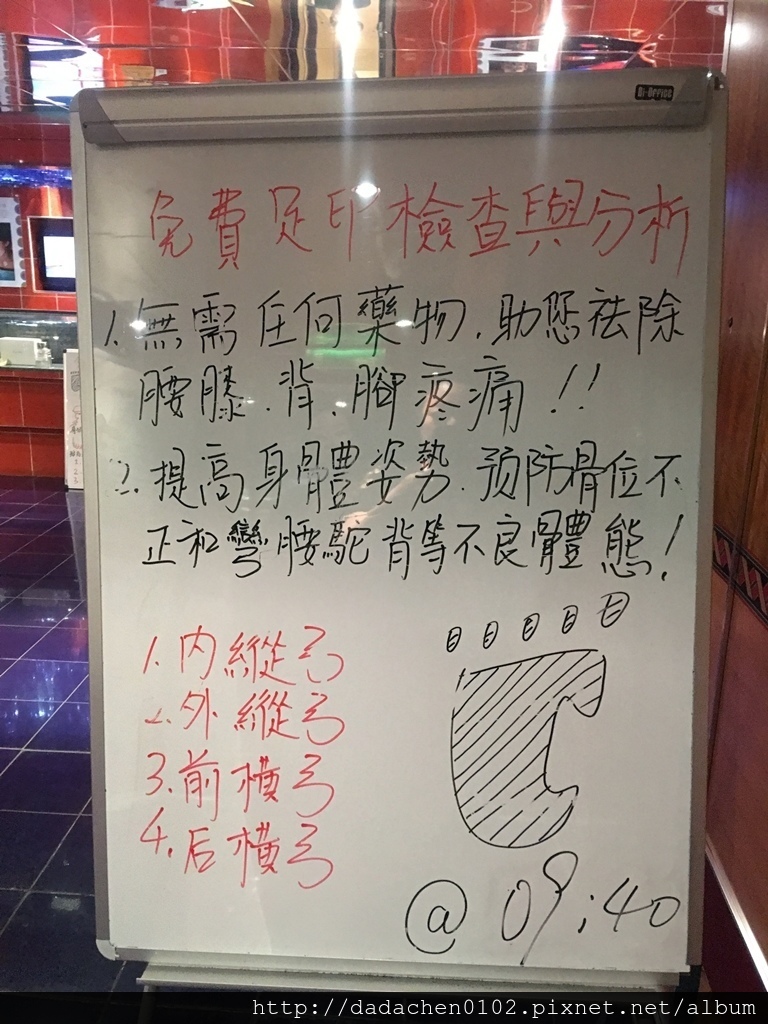 Bi-Office
免費足印檢查與分析
1.無需任何藥物,助您祛除
腰膝.背.腳疼痛!!
2.提高身體姿勢.预防骨位不
正和彎腰駝背等不良體態!
1.内縱弓
2.外縱弓
3.前橫弓
4.后橫弓
@ 09:40
http://dadachen0102.pixnet.net/album